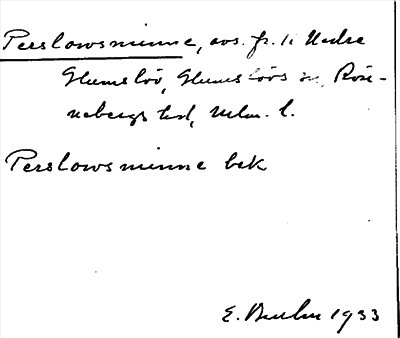 Perslowsminne, avs. fr. 1: Nedre
Glumslöv, Glumslövs sn, Rön-
nebergs hd, Malm. l.
Perslowsminne bek
E. 1933